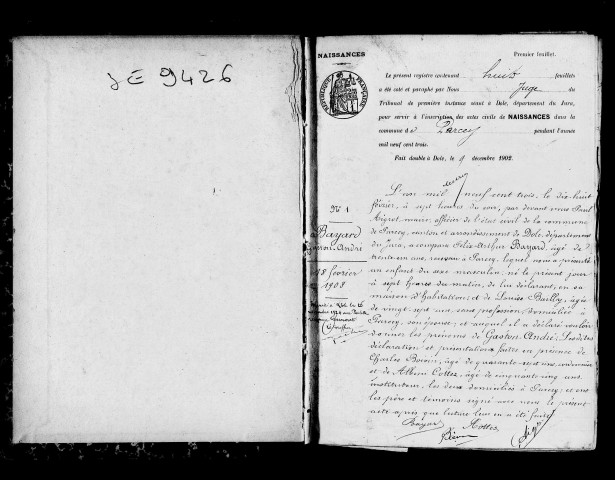 JE 9426
NAISSANCES
Premier feuillet.
RÉPUBLIQUE FRANÇAISE
Le présent registre contenant huit feuillets
a été coté et paraphé par Nous Juge du
Tribunal de première instance séant à Dole, département du Jura,
pour servir à l'inscription des actes civils de NAISSANCES dans la
commune d e Parcey pendant l'année
mil neuf cent trois.
Fait double à Dole, le 9 décembre 1902.
N° 1
Bayard
Gaston André
18 février
1903
L'an mil neuf cent trois, le dix-huit
février, à sept heures du soir, par devant nous Paul
maire, officier de l'état civil de la commune
de Parcey, canton et arrondissement de Dole, département
du Jura, a comparu Félix Arthur Bayard, âgé de
trente un ans, à Parcey, lequel nous a présenté
un enfant du sexe masculin, né le présent jour
à sept heures du matin, de lui déclarant, en sa
maison d'habitation, et de Louise Bailly, âgée
de vingt-sept ans, sans profession, domiciliée à
Parcey, son épouse; et auquel il a déclaré vouloir
donner les prénoms de Gaston André. Lesdites
déclaration et présentation faites en présence de
Charles âgé de quarante-sept ans,
et de Albin Cottez, âgé de cinquante-cinq ans
instituteur, les deux domiciliés à Parcey; et ont
les père et témoins signé avec nous le présent
acte après que lecture leur en a été faite.
Bayard Cottez